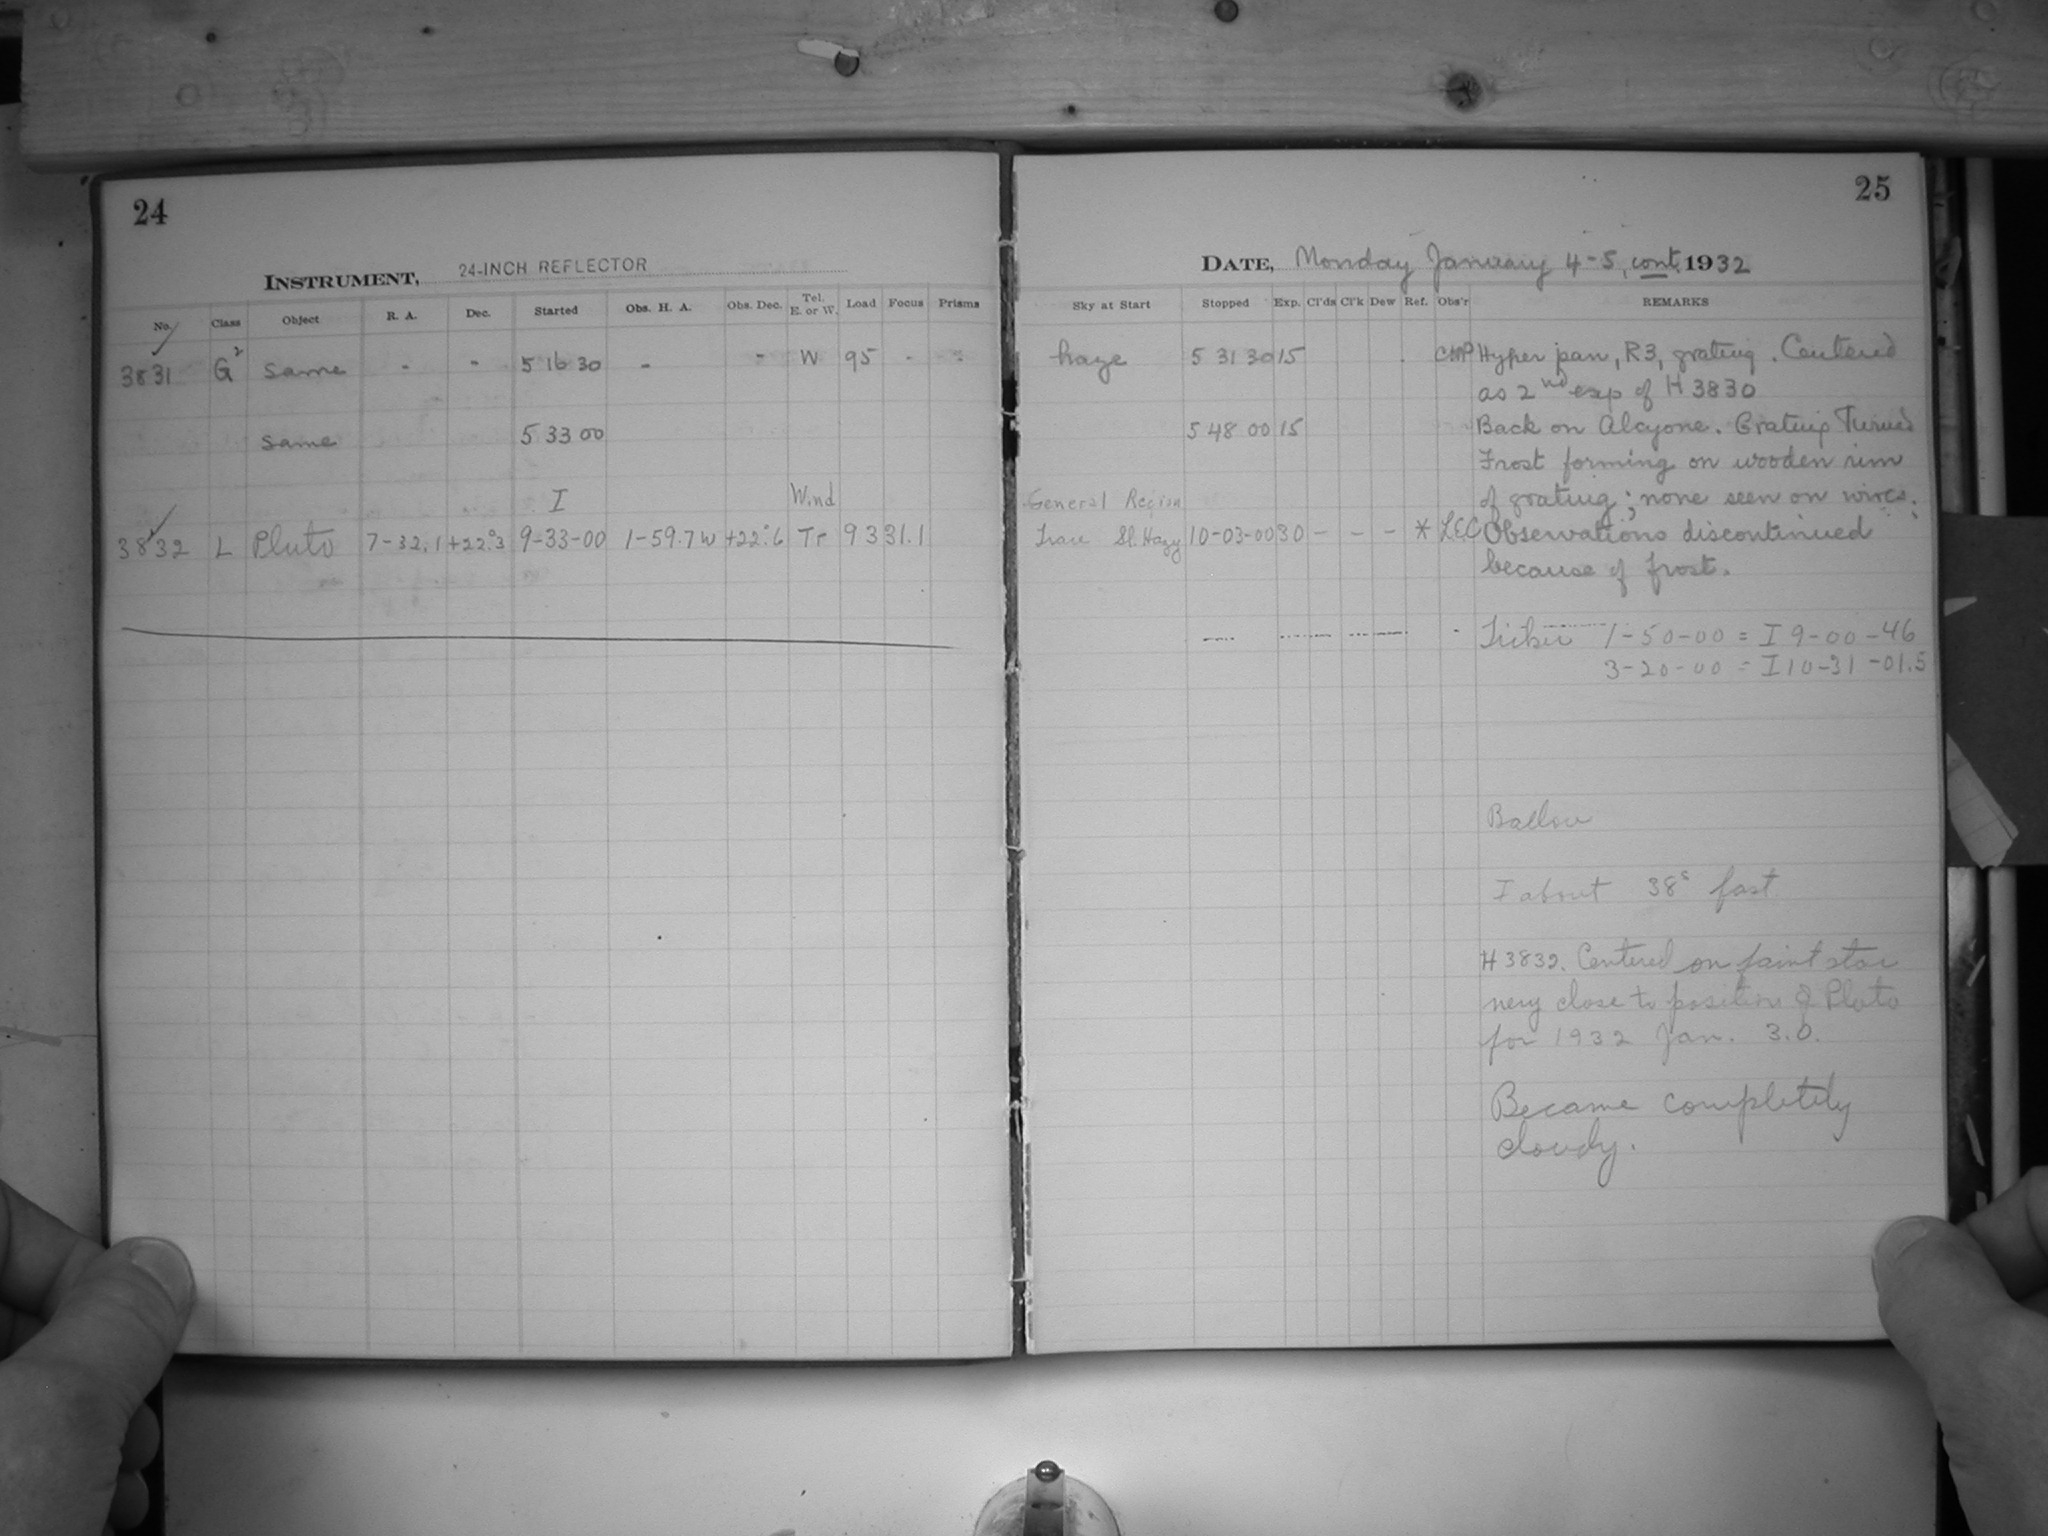 24
INSTRUMENT, 24-INCH REFLECTOR
No. Class Object R. A. Dec. Started Obs. H. A. Obs. Dec. Tel. E. or W. Load Focus Prisms
3831 G2 same - - 5 16 30 - - W 95 - -
same 5 33 00
I Wind
3832 L Pluto 7-32.1 +22°.3 9-33-00 1-59.7W +22°.6 Tr 93 31.1
25
DATE, Monday January 4-5, cont. 1932
Sky at Start Stopped Exp. Cl'ds Cl'k Dew Ref. Obs'r REMARKS
haze 5 31 30 15 CMP Hyper pan, R3, grating. Centered
as 2nd exp of H 3830
5 48 00 15 Back on Alcyone. Grating Turned
Frost forming on wooden rim
General Region of grating; none seen on wires.
Trace Sl. Hazy 10-03-00 30 - - - * LEC Observations discontinued
because of frost.
Ticker 1-50-00 = I 9-00-46
3-20-00 = I 10-31-01.5
Ballou
I about 38s fast
H 3832. Centered on faint star
very close to position of Pluto
for 1932 Jan. 3.0.
Became completely
cloudy.